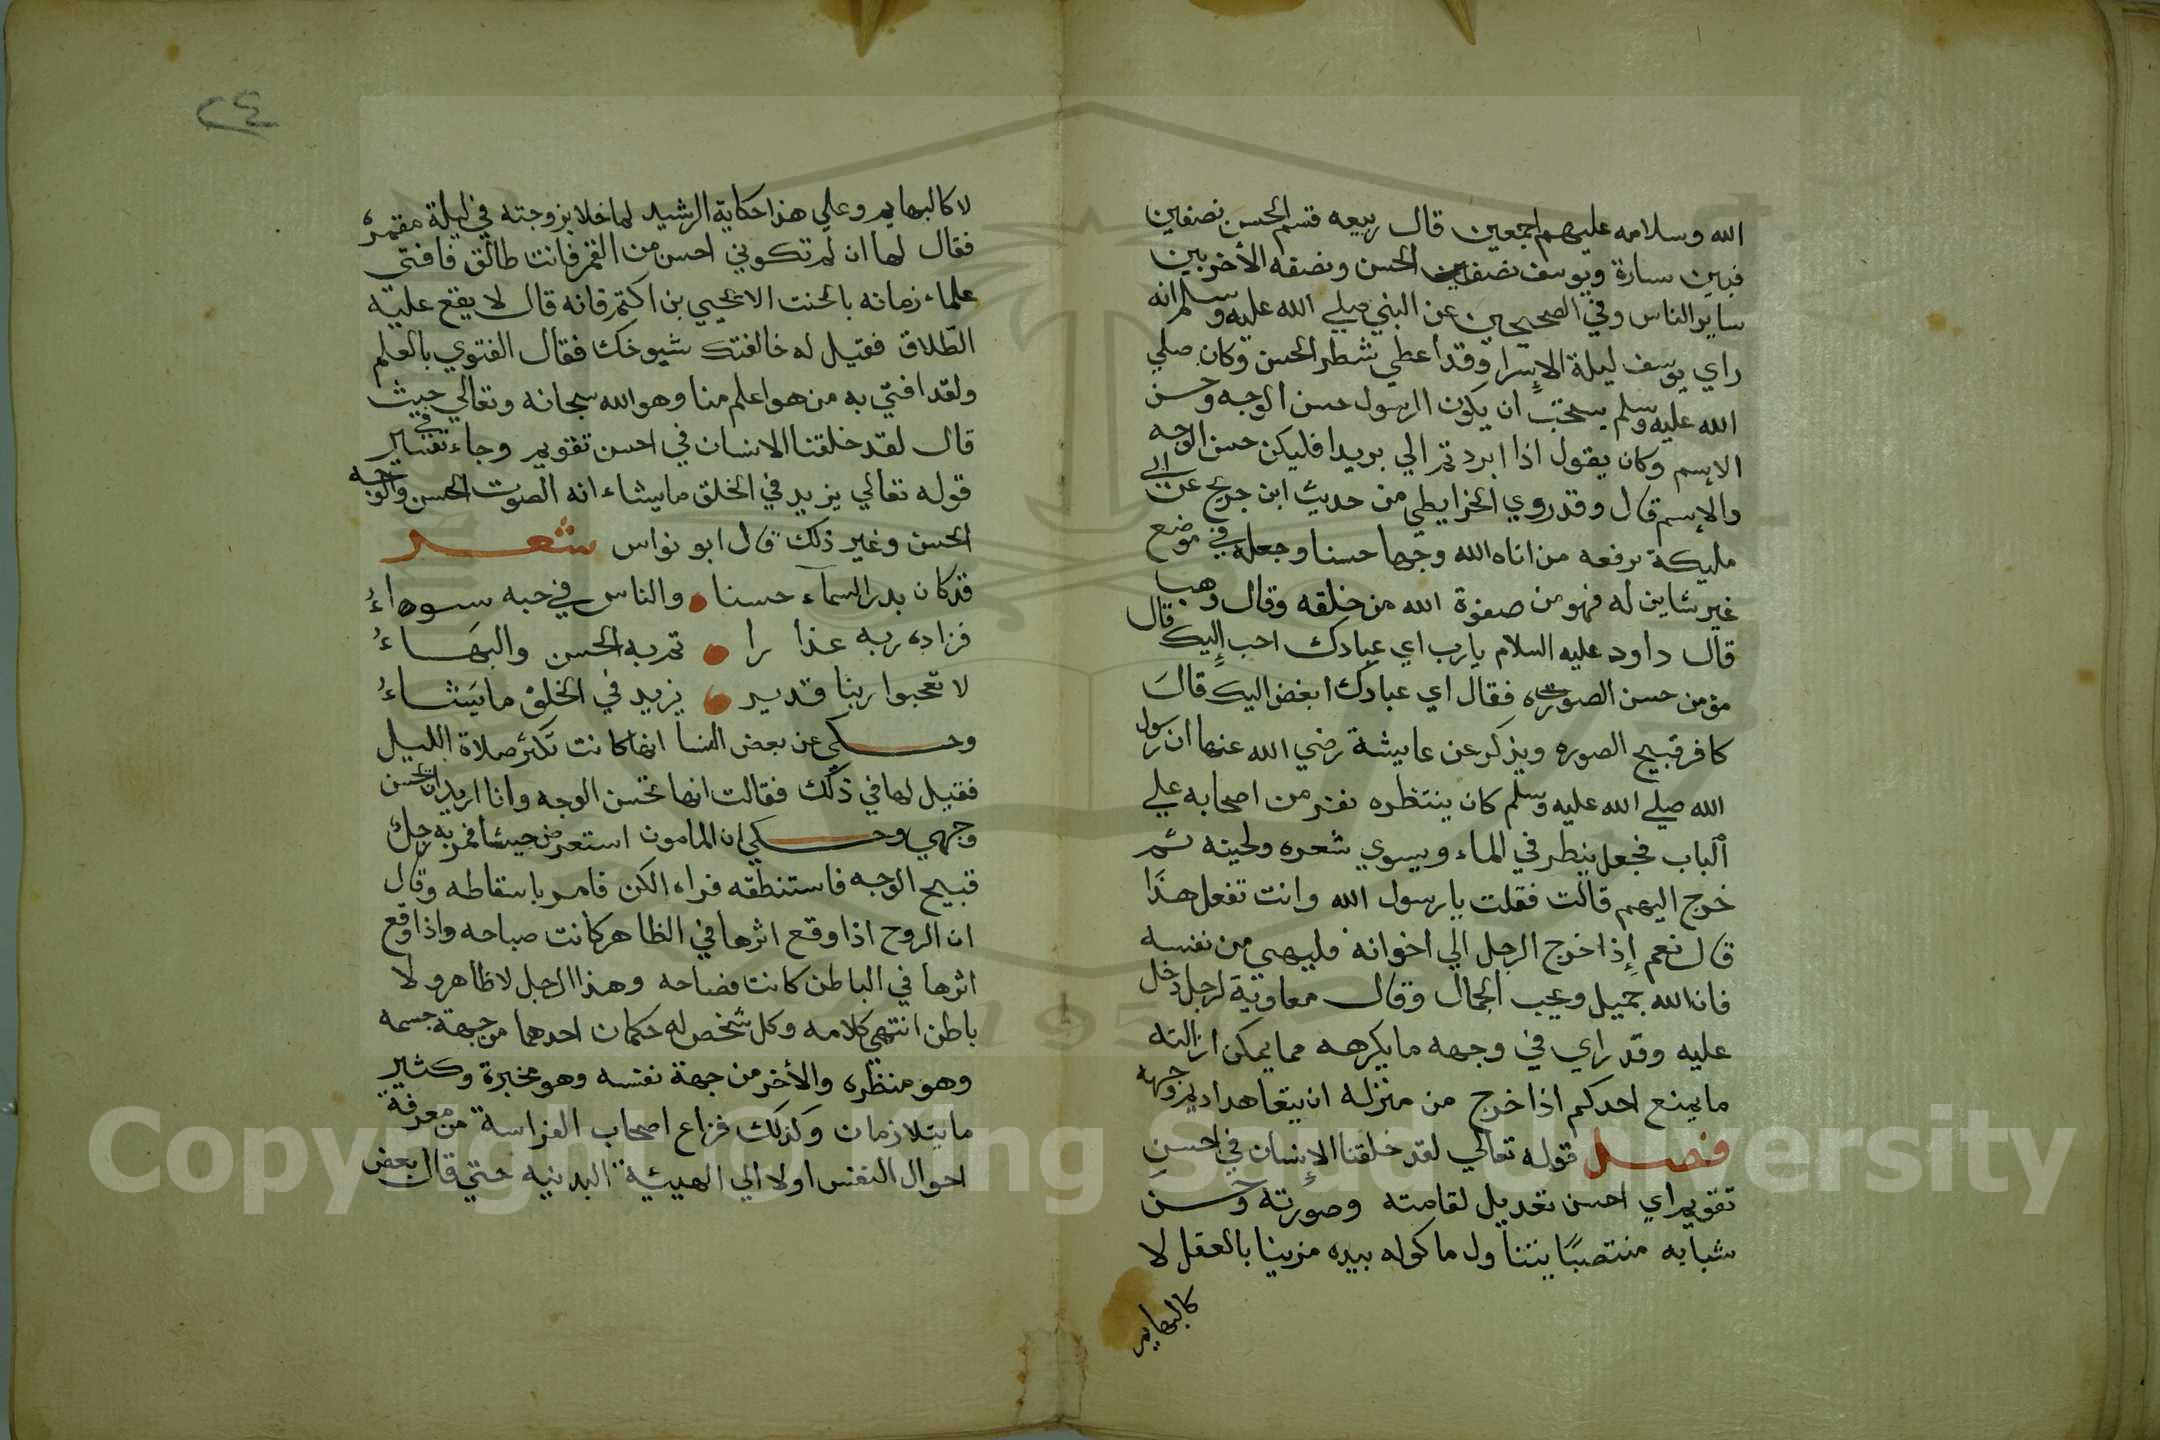 الله وسلامه عليهم اجمعين قال ربيعه قسم الحسن نصفين
فبين سارة ويوسف نصفين الحسن ونصفه الأخر بين
ساير الناس وفي الصحيحين عن النبي صلي الله عليه وسلم انه
راي يوسف ليلة الإسرا وقد اعطي شطر الحسن وكان صلي
الله عليه وسلم يستحب ان يكون الرسول حسن الوجه وحسن
الاسم وكان يقول اذا ابردتم الي بريدا فليكن حسن الوجه
والإسم قال وقد روي الخرايطي من حديث ابن جريج عن ابي
مليكة يرفعه من اتاه الله وجها حسنا وجعله في موضع
غير شاين له فهو من صفوة الله من خلقه وقال وهب
قال داود عليه السلام يارب اي عبادك احب إليك قال
مؤمن حسن الصوره فقال اي عبادك ابغض اليك قال
كافر قبيح الصوره ويذكر عن عايشة رضي الله عنها ان رسول
الله صلي الله عليه وسلم كان ينتظره نفر من اصحابه علي
الباب فجعل ينظر في الماء ويسوي شعره ولحيته ثم
خرج اليهم قالت فقلت يا رسول الله وانت تفعل هذا
قال نعم إذا خرج الرجل الي اخوانه فليهي من نفسه
فان الله جميل ويحب الجمال وقال معاوية لرجل دخل
عليه وقد راي في وجهه ما يكرهه مما يمكن ازالته
ما يمنع احدكم اذا خرج من منزله ان يتعاهد اديم وجهه
فصل قوله تعالي لقد خلقنا الإنسان في احسن
تقويم اي احسن تعديل لقامته وصورته وحسن
شبابه منتصبًا يتناول ماكوله بيده مزينا بالعقل لا
كالبهايم
٢٤
لا كالبهايم وعلي هذا حكاية الرشيد لما خلا بزوجته في ليلة مقمرة
فقال لها ان لم تكوني احسن من القمر فانت طالق فافتي
علماء زمانه بالحنت الا يحيي بن اكتم فانه قال لا يقع عليه
الطلاق فقيل له خالفتك شيوخك فقال الفتوي بالعلم
ولقد افتي به من هو اعلم منا وهو الله سبحانه وتعالي حيث
قال لقد خلقنا الانسان في احسن تقويم وجاء في تفسير
قوله تعالي يزيد في الخلق ما يشاء انه الصوت الحسن والوجه
الحسن وغير ذلك قال ابو نواس شعر
قد كان بدر السماء حسنا والناس في حبه سواءُ
فزاده ربه عذا را تم به الحسن والبهاءُ
لا تعجبوا ربنا قدير يزيد في الخلق ما يشاءُ
وحكي عن بعض النسا انها كانت تكثر صلاة الليل
فقيل لها في ذلك فقالت انها تحسن الوجه وانا اريد ان تحسن
وجهي وحكي ان المامون استعرض جيشا فمر به رجل
قبيح الوجه فاستنطقه فراه الكن فامر باسقاطه وقال
ان الروح اذا وقع اثرها في الظاهر كانت صباحه واذا وقع
اثرها في الباطن كانت فصاحه وهذا الرجل لا ظاهر ولا
باطن انتهي كلامه وكل شخص له حكمان احدهما من جهة جسمه
وهو منظره والأخر من جهة نفسه وهو مخبرة وكثير
ما يتلازمان وكذلك فزاع اصحاب الفراسة من معرفة
احوال النفس اولا الي الهيئية البدنيه حتي قال بعض
Copyright © King Saud University
1957